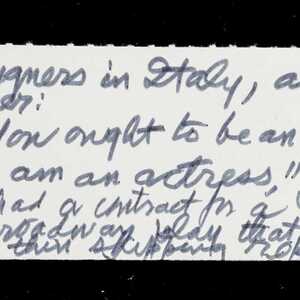 igners in Italy, a
er:
You ought to be an
am an actress,"
had a contract for a
roadway play that
thin skipping rop